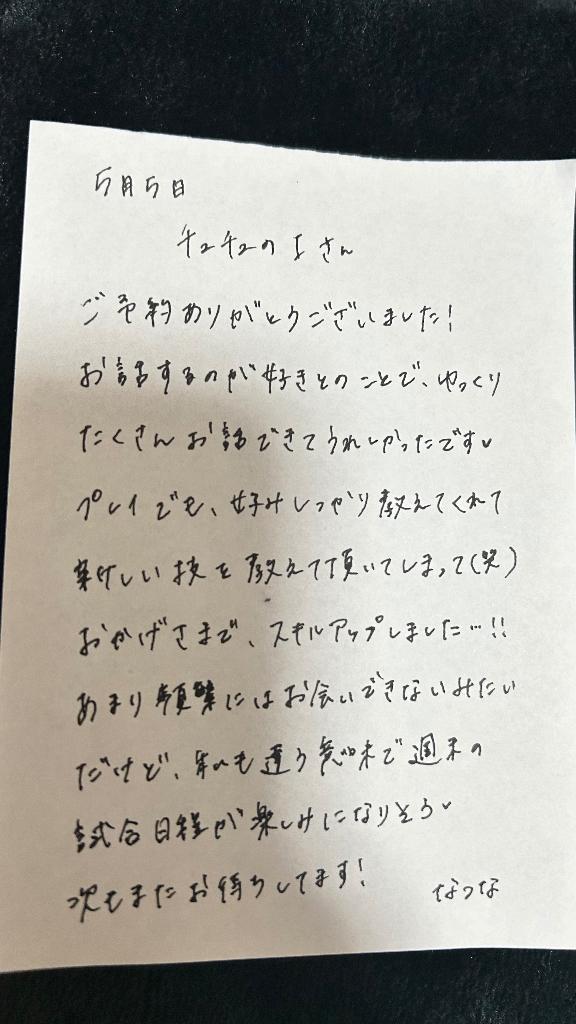 5月5日
チュチュのよさん
ご予約ありがとうございました!
お話するのが好きとのことで、ゆっくり
たくさんお話できてうれしかったです♥
プレイでも、好みしっかり教えてくれて
新しい技を教えて頂いてしまって(笑)
おかげさまで、スキルアップしました…!!
あまり頻繁にはお会いできないみたい
だけど、私も違う意味で週末の
試合日程が楽しみになりそう♥
次もまたお待ちしてます!
なつな